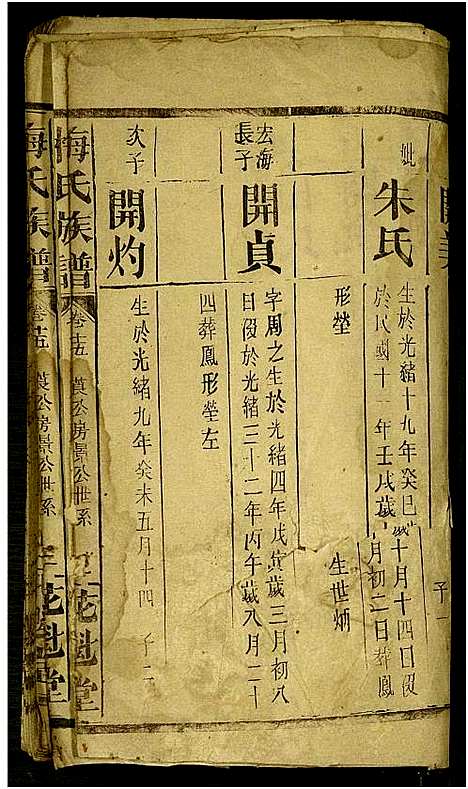 子一
妣
朱氏
生於光緒十九年癸巳歲十月十四日歿
於民國十一年壬戌歲 月初二日葬鳳
形塋
生世炳
宏海
長子
開貞
字周之生於光緒四年戊寅歲三月初八
日歿於光緒三十二年丙午歲八月二十
四葬鳳形塋左
次子
開灼
生於光緒九年癸未五月十四 子二
梅氏族譜
卷十五
公房景公世系
花魁堂
梅氏族譜
卷十五
公房景公世系
花魁堂